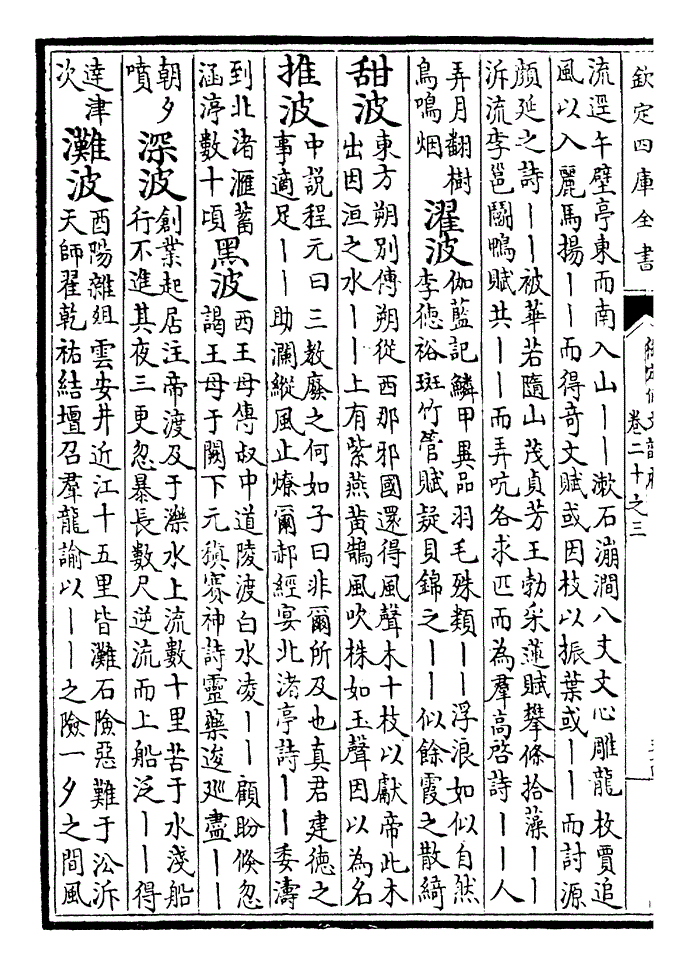 欽定四庫全書
卷二十之三
流逕午壁亭東而南入山丨丨漱石澗八丈文心雕龍枚賈追
風以入麗馬揚丨丨而得奇文賦或因枝以振葉或丨丨而討源
顔延之詩丨丨被華若隨山茂貞芳王勃采蓮賦攀條拾藻丨丨
泝流李邕鬭鴨賦共丨丨而弄吭各求匹而為羣高啓詩丨丨人
弄月翻樹
鳥鳴烟
濯波
伽藍記鱗甲異品羽毛殊類丨丨浮浪如似自然
李徳裕斑竹管賦疑貝錦之丨丨似餘霞之散綺
甜波
東方朔别傳朔從西那邪國還得風聲木十枝以獻帝此木
出因洹之水丨丨上有紫燕黄鵠風吹株如玉聲因以為名
推波
中説程元曰三教廢之何如子曰非爾所及也真君建徳之
事適足丨丨助瀾縱風止燎爾郝經宴北渚亭詩丨丨委濤
到北渚滙蓄
涵渟數十頃
黒波
西王母傳叔中道陵渡白水凌丨丨顧盼倐忽
謁王母于闕下元稹賽神詩靈藥逡廵盡丨丨
朝夕
噴
深波
創業起居注帝渡及于灤水上流數十里苦于水淺船
行不進其夜三更忽暴長數尺逆流而上船泛丨丨得
逹津
次
灘波
酉陽雜俎雲安井近江十五里皆灘石險惡難于㳂泝
天師翟乾祐結壇召羣龍諭以丨丨之險一夕之間風